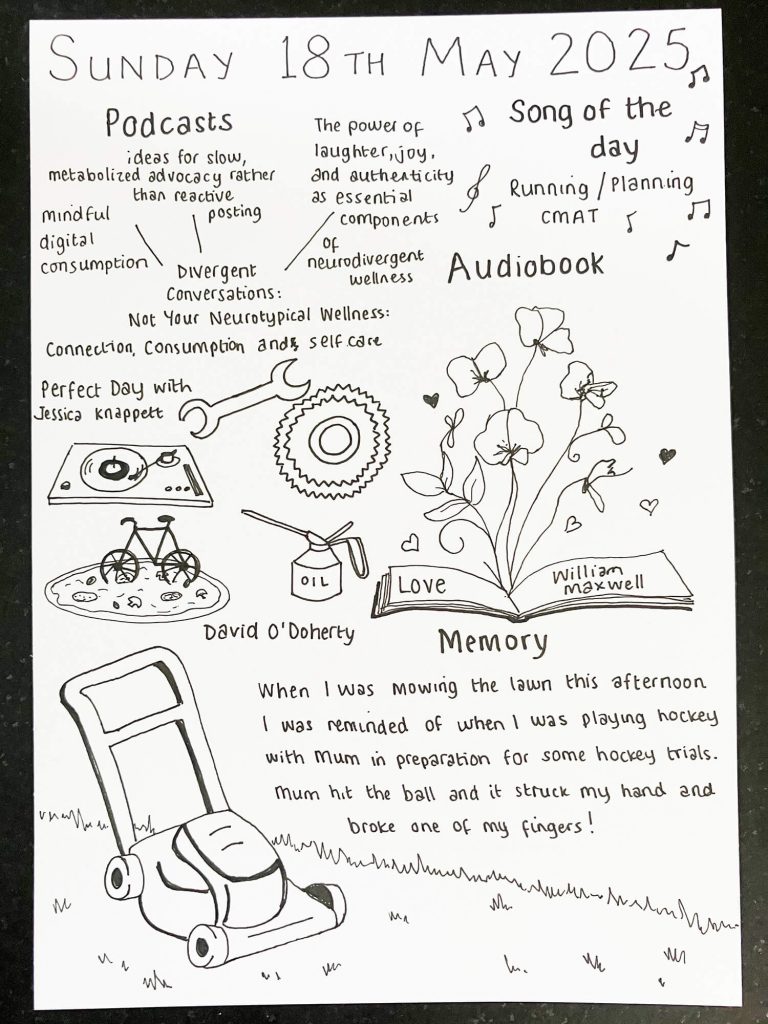 SUNDAY 18TH MAY 2025
Podcasts
ideas for slow,
metabolized advocacy rather
than reactive
posting
mindful
digital
consumption
The power of
laughter, joy,
and authenticity
as essential
components
of
neurodivergent
wellness
Divergent
Conversations:
Not Your Neurotypical Wellness:
Connection, Consumption and self care
Perfect Day with
Jessica Knappett
OIL
David O'Doherty
Song of the
day
Running / Planning
CMAT
Audiobook
Love
William
Maxwell
Memory
When I was mowing the lawn this afternoon
I was reminded of when I was playing hockey
with Mum in preparation for some hockey trials.
Mum hit the ball and it struck my hand and
broke one of my fingers!